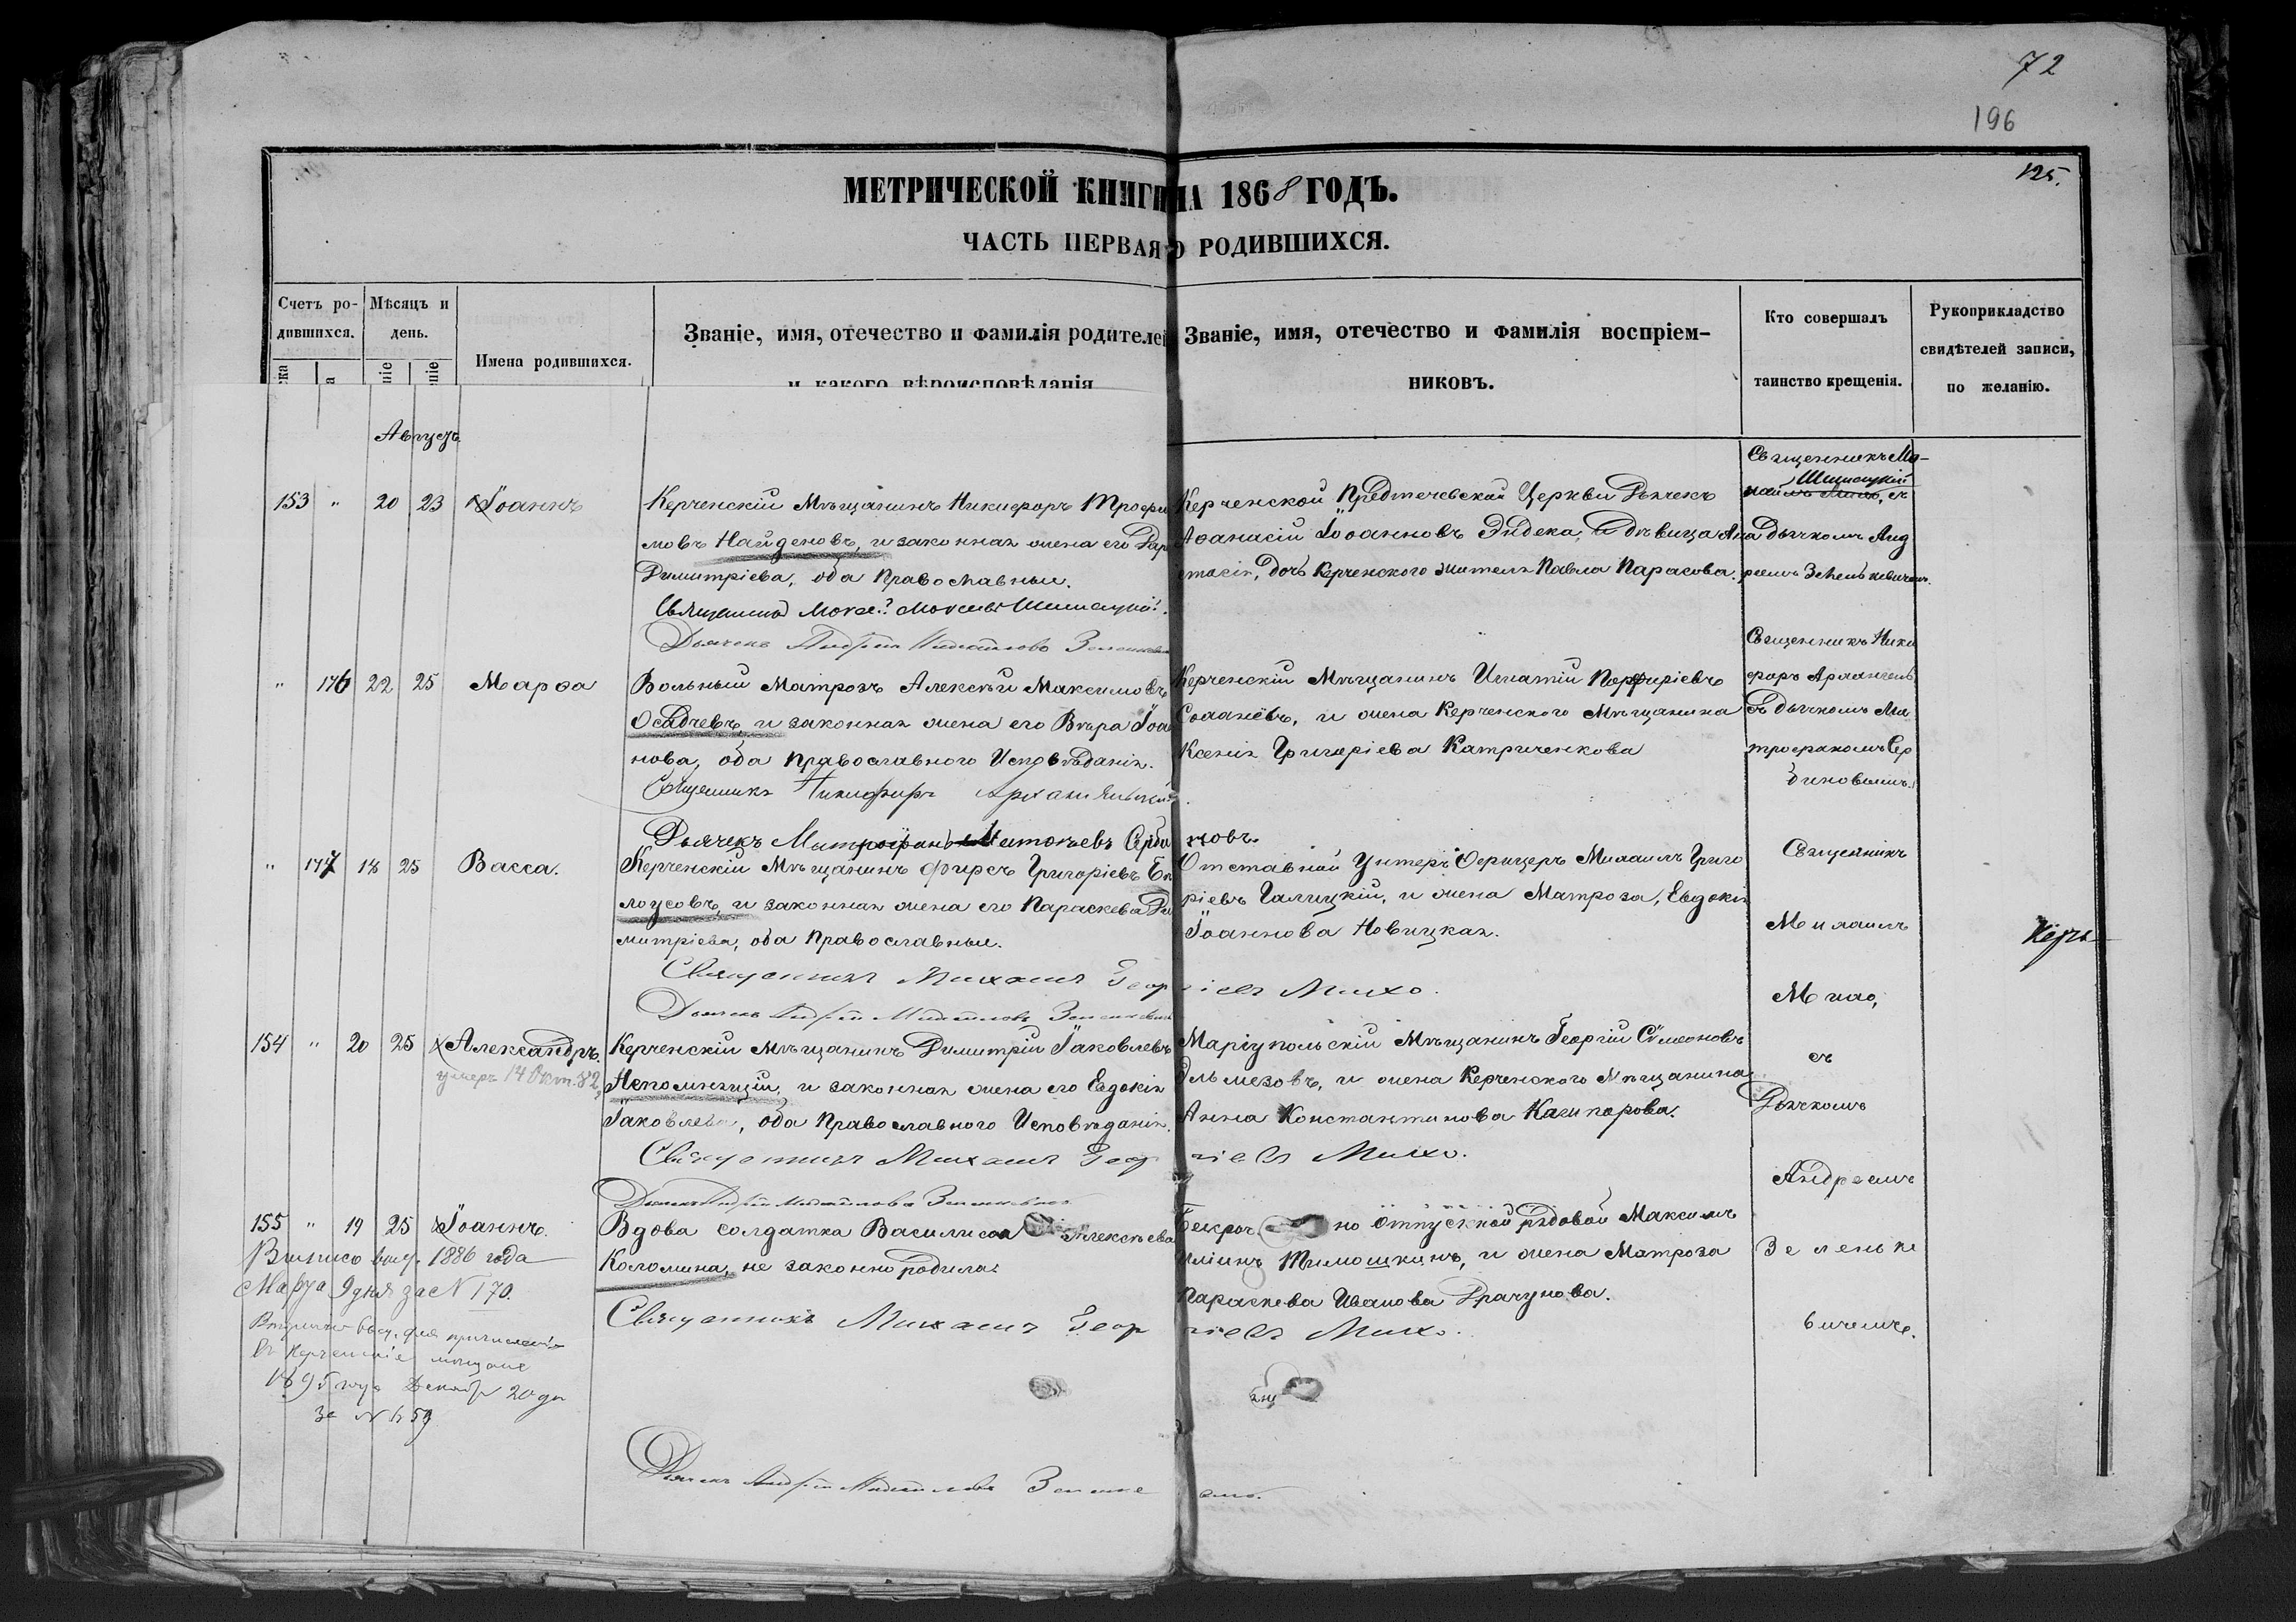 72
196
125.
МЕТРИЧЕСКОЙ КНИГИ НА 1868 ГОДЪ.
ЧАСТЬ ПЕРВАЯ О РОДИВШИХСЯ.
Счетъ ро-
дившихся.
Мѣсяцъ и
день.
Имена родившихся.
Званіе, имя, отечество и фамилія родителей
и какого вѣроисповѣданія
Званіе, имя, отечество и фамилія воспріем-
никовъ.
Кто совершалъ
таинство крещенія.
Рукоприкладство
свидѣтелей записи,
по желанію.
Августъ
153 " 20 23 Іоаннъ
Керченскій Мѣщанинъ Никифоръ Трофи
мовъ Найденовъ, и законная жена его
Димитріева, оба Православные.
Священникъ Моисей Шишацкій.
Дьячекъ Андрей Михайловъ
Керченской Предтечевской Церкви Дьячекъ
Аѳанасій Іоанновъ Эндека, и дѣвица Ана
стасія, дочь Керченского жителя Павла Парасова.
Священникъ Мо-
Шишацкій
съ
Дьячкомъ Анд
реемъ Зеленькевичемъ.
" 176 22 25 Марѳа
Вольный Матрозъ Алексѣй Максимовъ
Осадчевъ, и законная жена его Вѣра Іоан
нова, оба Православного Исповѣданія.
Священникъ Никифоръ Архангельскій
Дьячекъ Митрофанъ Матвѣевъ Серди
новъ.
Керченскій Мѣщанинъ Игнатій Порфиріевъ
и жена Керченского Мѣщанина
Ксенія Григоріева Катриченкова
Священникъ Ники
форъ Архангель
съ дьячкомъ Ми
трофаномъ Сер
диновымъ.
" 177 18 25 Васса.
Керченскій Мѣщанинъ Фирсъ Григоріевъ Бѣ
лоусовъ, и законная жена его Параскева Ди
митріева, оба Православные.
Священникъ Михаилъ Георгіевъ Михо.
Дьячекъ Андрей Михайловъ
Отставной Унтеръ Офицеръ Михаилъ Григо
ріевъ Галицкій, и жена Матроза, Евдокія
Іоаннова Новицкая.
Священникъ
Михаилъ
Михо,
съ
Дьячкомъ
Андреемъ
Зеленьке
вичемъ.
Керч
154 " 20 25 Александръ.
умеръ 14 Окт. 82
Керченскій Мѣщанинъ Димитрій Іаковлевъ
Непомнящій, и законная жена его Евдокія
Іаковлева, оба Православного Исповѣданія.
Священникъ Михаилъ Георгіевъ Михо.
Дьячекъ Андрей Михайловъ Зеленкевичъ
Маріупольскій Мѣщанинъ Георгій Сѵмеоновъ
Эльмезовъ, и жена Керченского Мѣщанина
Анна Константинова Кашпорова.
155 " 19 25 Іоаннъ.
Выпись выд. 1886 года
Марта 9 дня за N 170.
выд. для причисленія
въ Керченскіе мѣщане
1895 году Декабр 20 дн
за N
Вдова солдатка Василиса Алексѣева
Коломина, не законно родила.
Священникъ Михаилъ Георгіевъ Михо.
но отпускной рядовой Максимъ
Иліинъ Тимошкинъ, и жена Матроза
Параскева Иванова Драгунова.
Дьячекъ Андрей Михайловъ